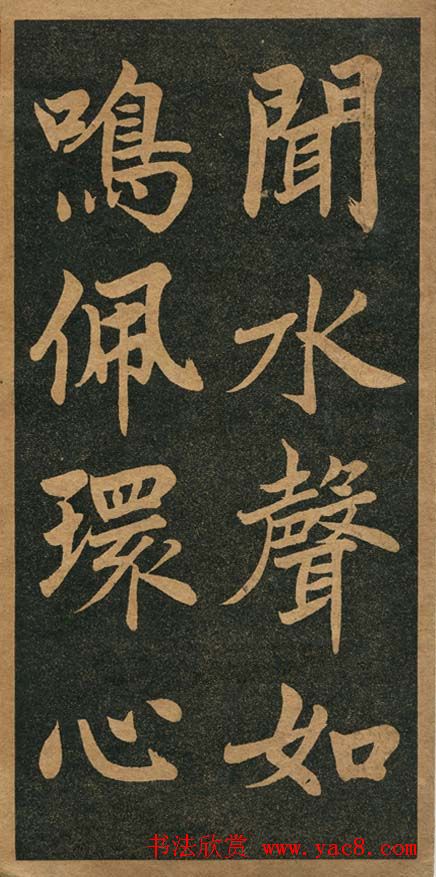 聞水聲如
鳴佩環心
书法欣赏 www.yac8.com